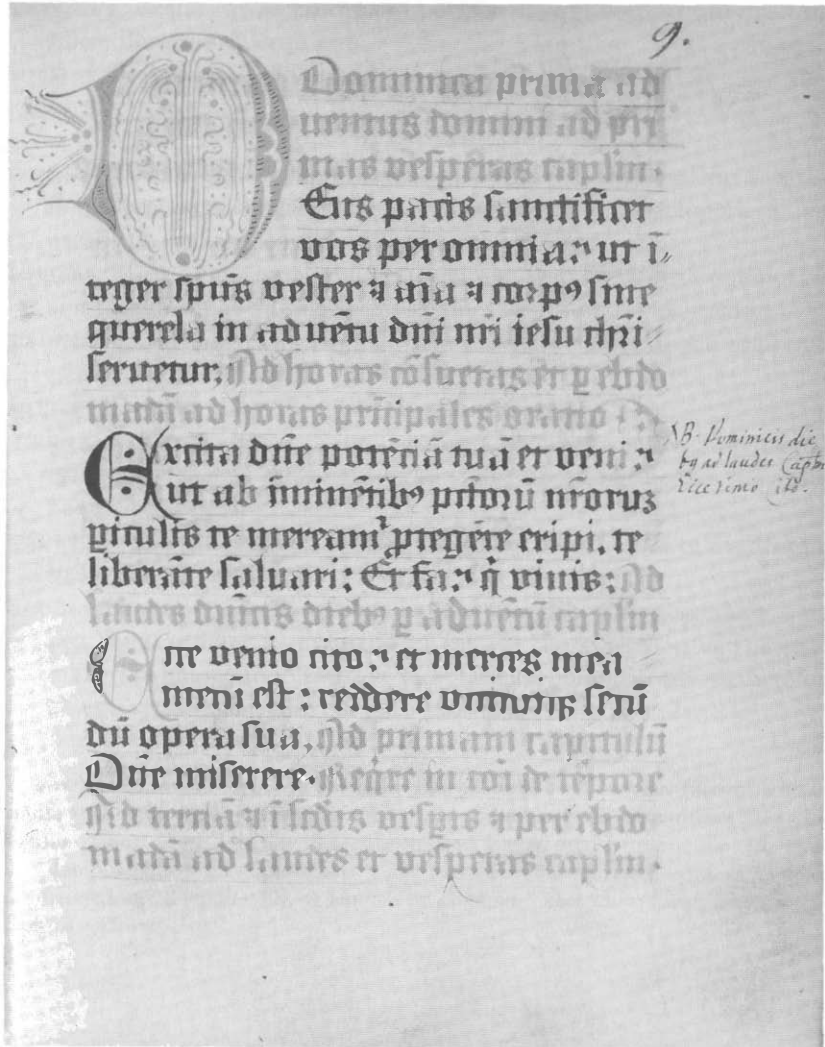 9.
Dominica prima ad
uentus domini ad pri
mas vesperas caplm.
Eus pacis sanctificet
vos per omnia: ut ī
teger spūs vester ⁊ aīa ⁊ corpꝯ sine
querela in aduētu dn̄i nr̄i iesu chr̄i
seruetur. Ad horas cōsuetas et ꝑ ebdo
madā ad horas prīcipales oratio.
Excita dn̄e potēciā tuā et veni:
ut ab īminētibꝯ pctōrū nr̄oruꝫ
ꝑiculis te mereamᷣ ꝓtegēte eripi. te
liberāte saluari: Et fa. q̇ viuis: Ad
laudes dn̄icis diebꝯ ꝑ aduētū caplm
cce venio cito: et merces mea
mecū est: reddere vnicuiqꝫ secū
dū opera sua. Ad primam capitulū
Dn̄e miserere. Reqͥre in coī de tēpore
Ad terciā ⁊ ī scd̄is vesꝑis ⁊ per ebdo
madā ad laudes et vesperas caplm.
NB. Dominicis die
bꝯ ad laudes